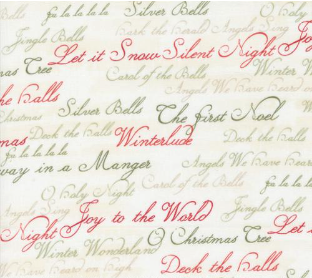 fa la la la la Silver Bells O Holy
Jingle Bells Hark the Herald Angels Sing Joy
Let it Snow Silent Night
Christmas Tree Carol of the Bells Winter W
the Halls Angels We Have Heard on
Silver Bells The first Noel
Christmas Deck the Halls Winterlude Deck the Halls
mas
fa la la la la Angels We Have Heard
way in a Manger fa la la la
O Holy Night Carol of the Bells
Angels Silver Bells
Night Joy to the World Let i
Winter Wonderland O Christmas Tree
We Have Heard on High Deck the Halls